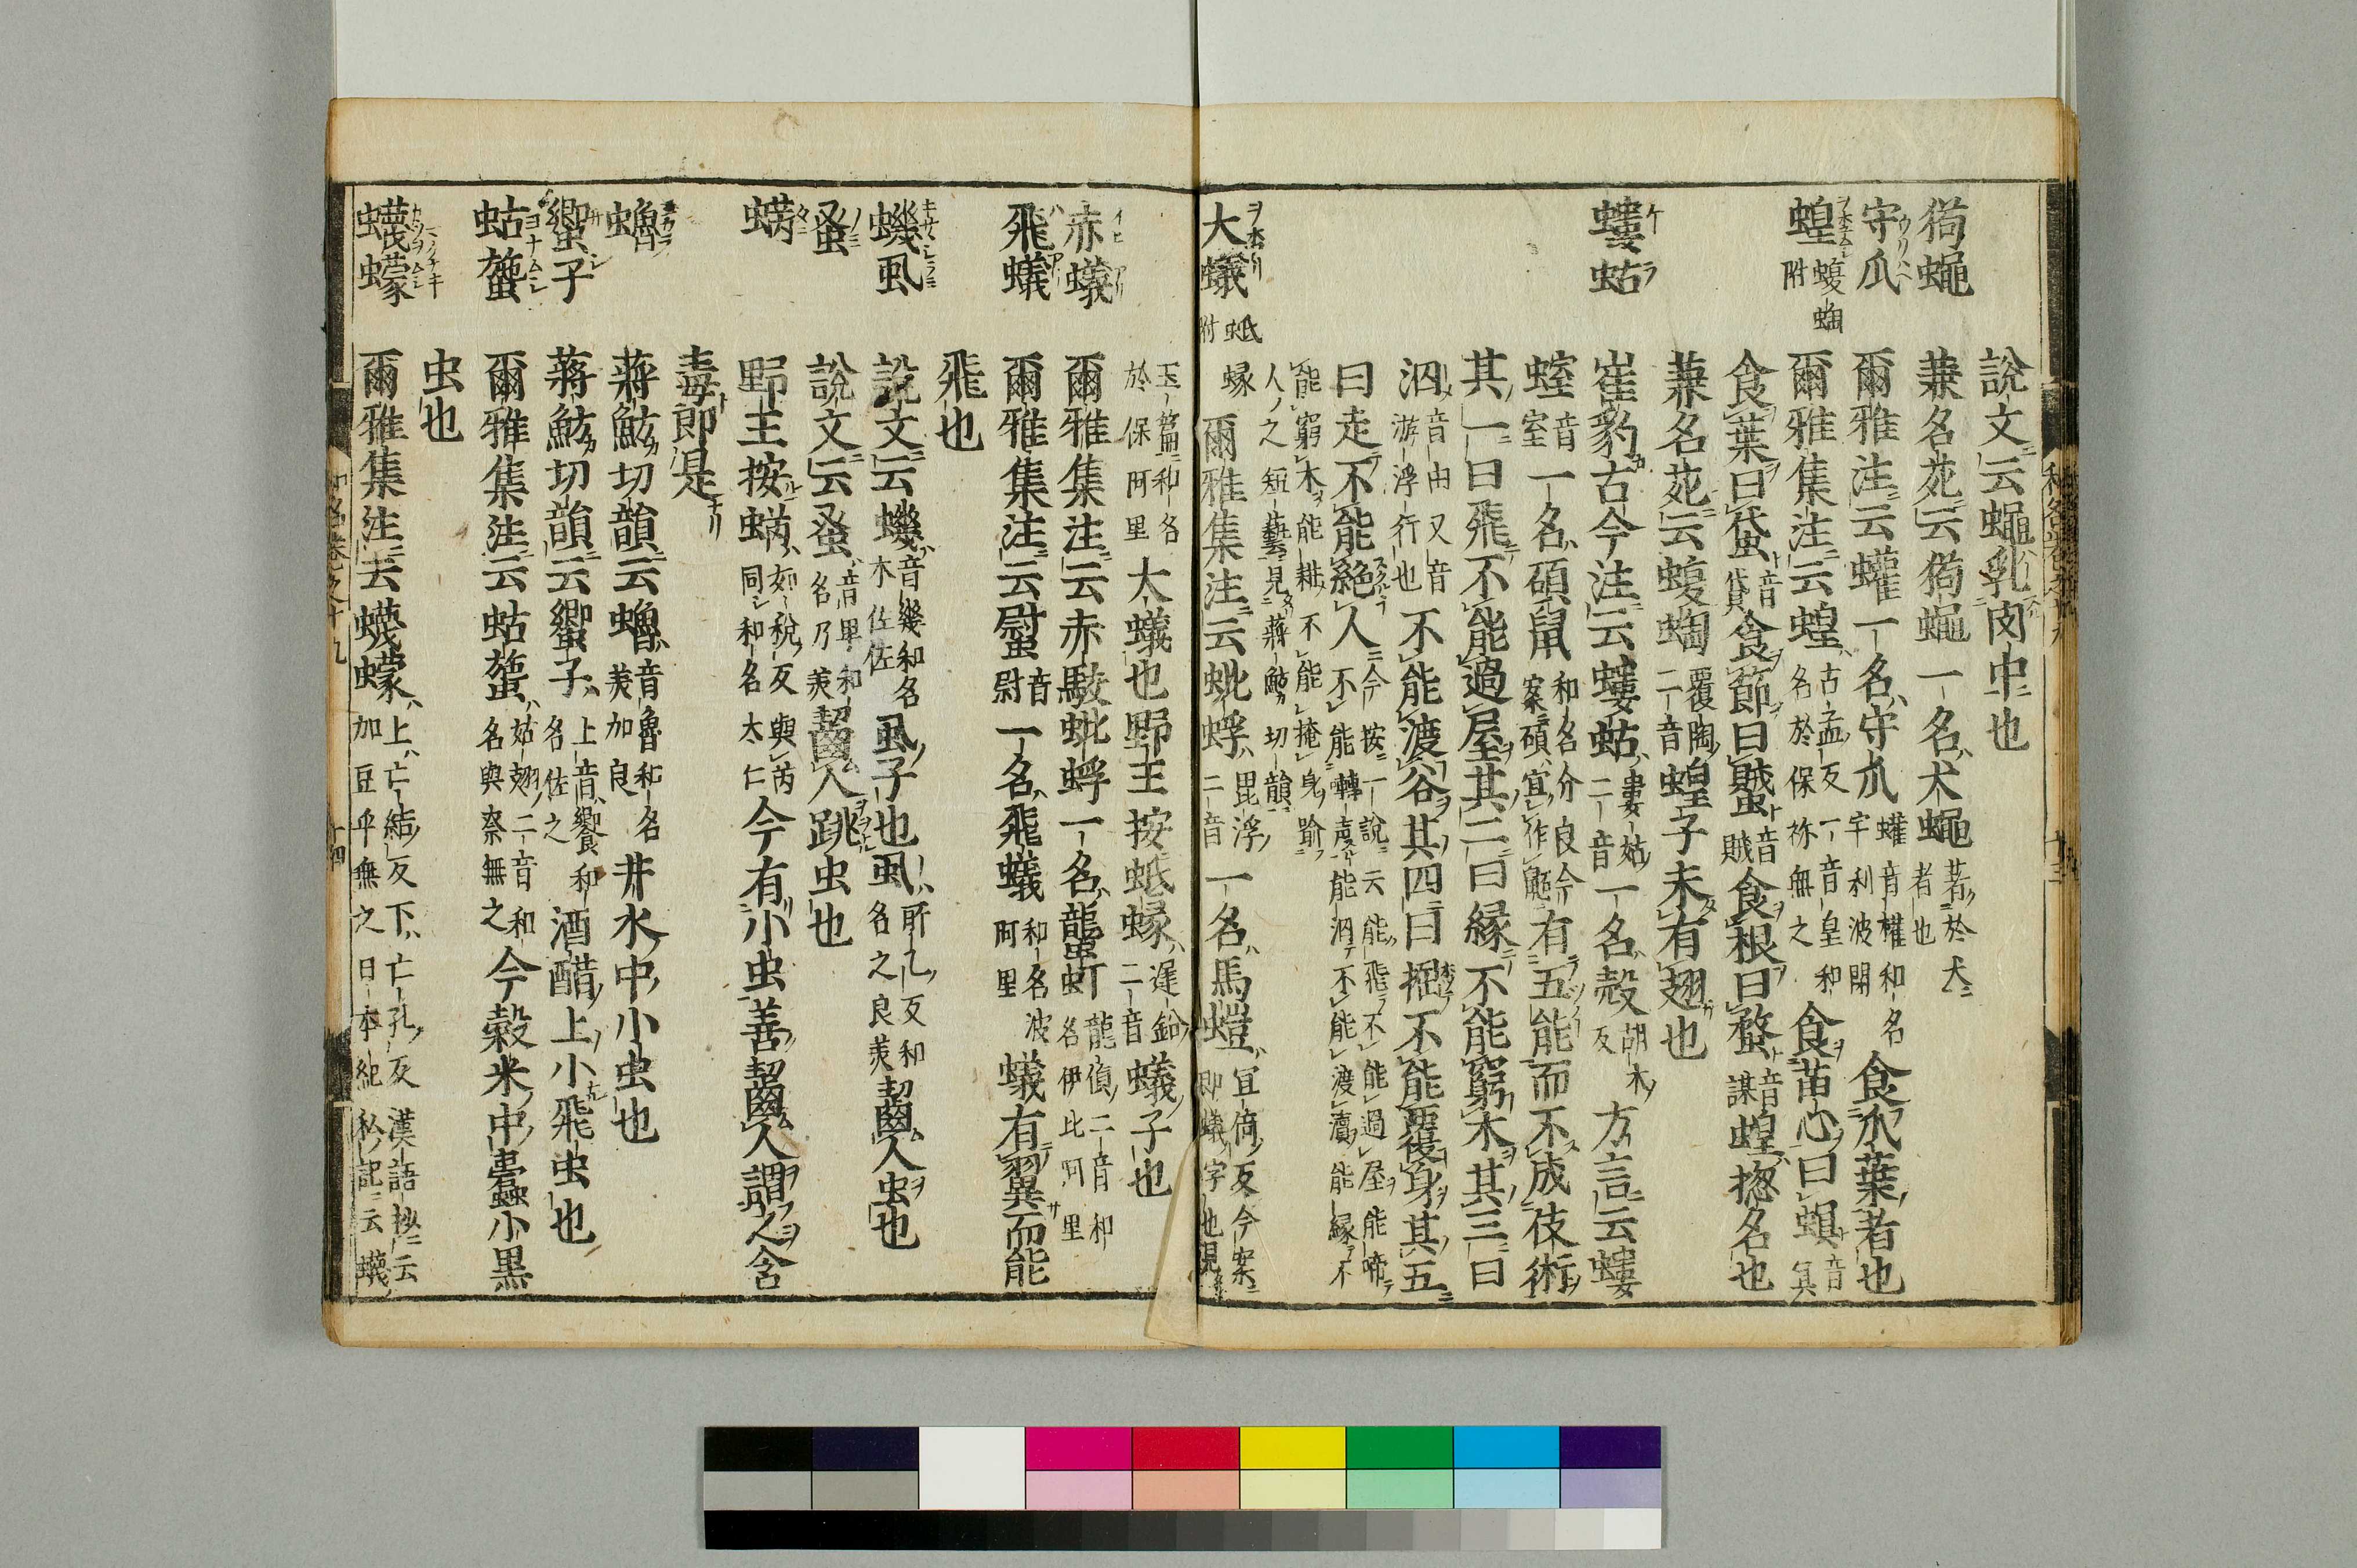 說文云蠅乳肉中也
狗蠅 蒹名苑云狗蠅一名犬蠅 著於犬者也
守瓜 爾雅注云蠸一名守瓜 蠸音權和名宇利波閉 食瓜葉者也
蝗 蝮蜪附 爾雅集注云蝗 古孟反一音皇和名於保祢無之 食苗心曰螟 音冥
食葉曰蟘 音貸 食節曰蠈 音賊 食根曰蝥 音謀 蝗揔名也
蒹名苑云蝮蜪 覆陶二音 蝗子未有翅也
螻蛄 崔豹古今注云螻蛄 婁姑二音 一名 胡木反 方言云螻
蛭 音室 一名碩鼠 和名 有五能而不成伎術
其一曰飛不能過屋其二曰緣不能窮木其三曰
泅 音由又音游浮行也 不能渡谷其四曰掘不能覆身其五
曰走不能絕人 今按一說云能飛不能過屋能啼不能轉声能泅不能渡瀆能緣不
能窮木能耕不能掩身踰人之短藝見蔣魴切韻
大蟻 蚳蝝附 爾雅集注云蚍蜉 毘浮二音 一名馬螘 宜倚反今案即蟻字也見
玉篇和名於保阿里 大蟻也野王按蚳蝝 遲鉛二音 蟻子也
赤蟻 爾雅集注云赤駮蚍蜉一名蠪虰 龍偵二音和名伊比阿里
飛蟻 爾雅集注云螱 音尉 一名飛蟻 和名波阿里 蟻有翼而能
飛也
蟣虱 說文云蟣 音幾和名木佐佐 虱子也虱 所乙反和名之良美 齧人虫也
蚤 說文云蚤 音早和名乃美 齧人跳虫也
蜹 野王按蜹 如稅反與芮同和名太仁 今有小虫善齧人謂之含
毒即是
蔣魴切韻云 音魯和名美加良 井水中小虫也
蠁子 蔣魴切韻云蠁子 上音饗和名佐之 酒醋上小飛虫也
蛄䗐 爾雅集注云蛄䗐 姑翅二音和名與奈無之 今穀米中蠹小黑
虫也
蠛蠓 爾雅集注云蠛蠓 上亡結反下亡孔反漢語抄云加豆乎無之日本紀私記云蠛